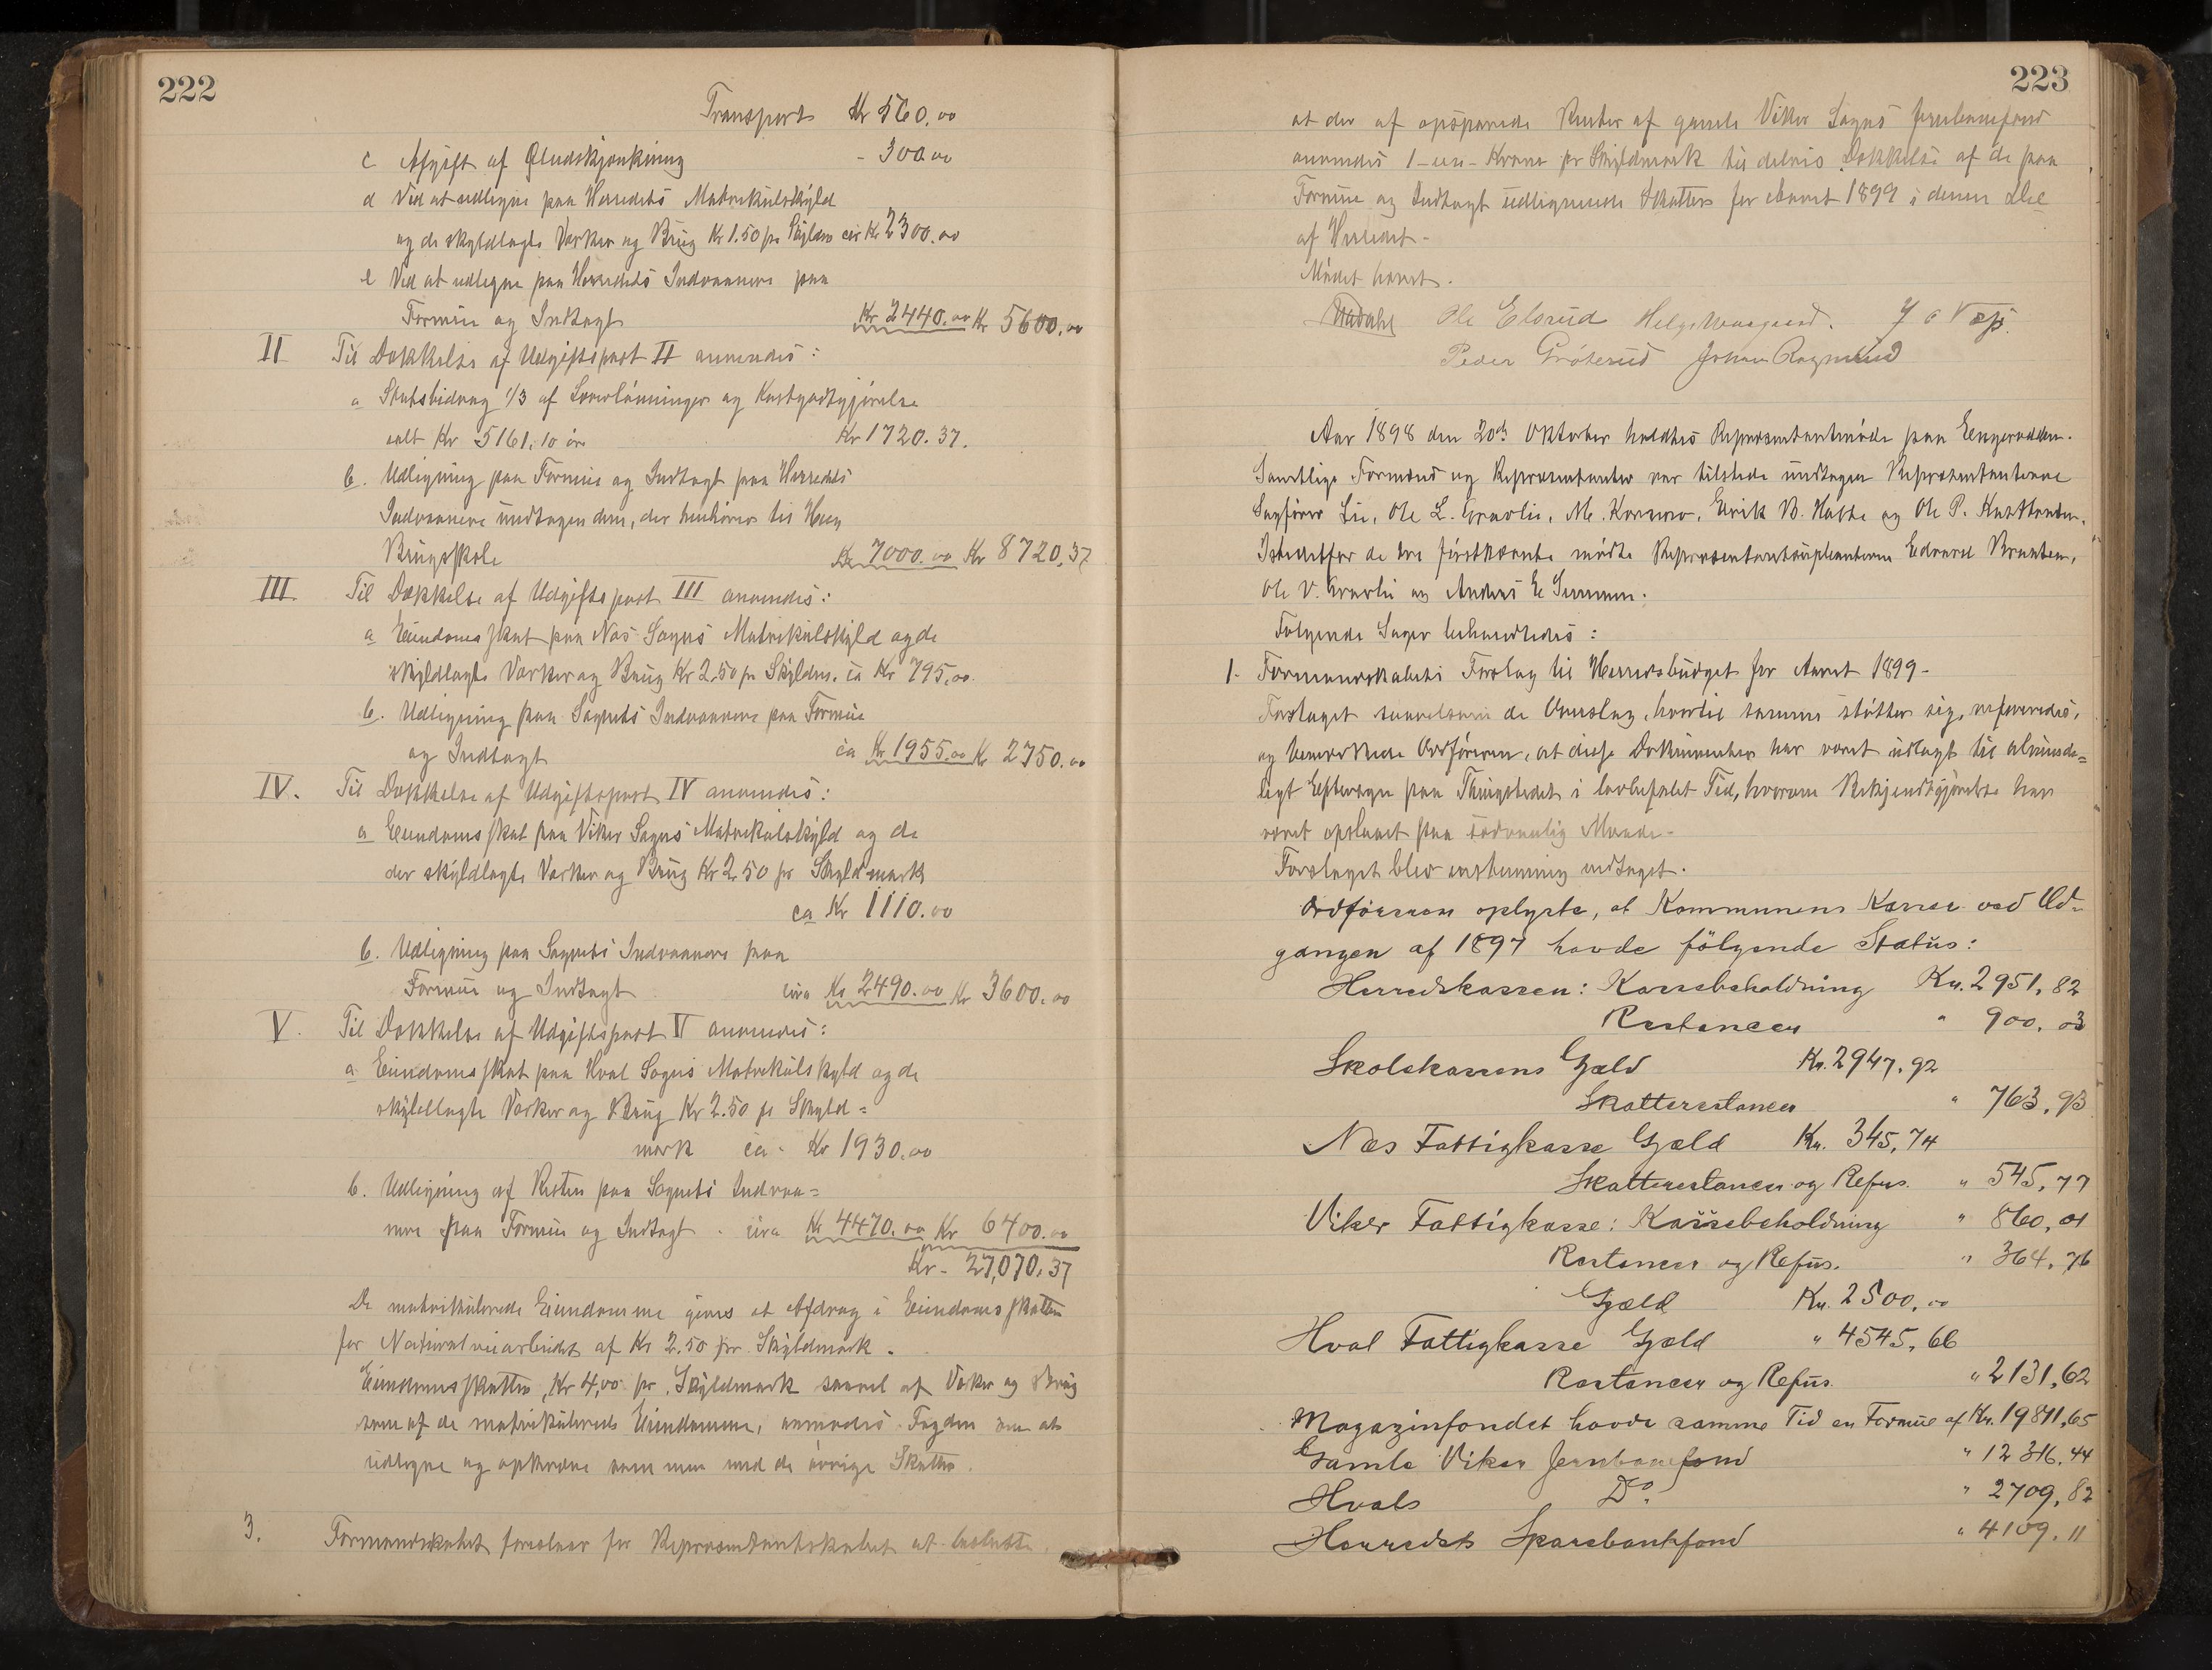 222
Transport Kr 560.00
c Afgift af Øludskjænkning - 300.00
d Ved at udligne paa Herredets Matrikulskyld
og de skyldlagte Værker og Brug Kr 1.50 pr Skyldm cir Kr 2300.00
e Ved at udligne paa Herredets Indvaanere paa
Formue og Indtægt Kr 2440.00 Kr 5600.00
II Til Dækkelse af Udgiftspost II anvendes:
a Statsbidrag 1/3 af Lærerlønninger og Kostgodtgjørelse
ialt Kr 5161.10 øre Kr 1720.37.
b. Udligning paa Formue og Indtægt paa Herredets
Indvaanere undtagen dem, der henhører til Hen
Brugsskole Kr 7000.00 Kr 8720,37
III. Til Dækkelse af Udgiftspost III anvendes:
a Eiendomsskat paa Næs Sogns Matrikulskyld og de
skyldlagte Værker og Brug Kr 2.50 pr Skyldm. ca Kr 795,00.
b. Udligning paa Sognets Indvaanere paa Formue
og Indtægt ca Kr 1955.00 Kr 2750.00
IV. Til Dækkelse af Udgiftspost IV anvendes:
a Eiendomsskat paa Viker Sogns Matrikulskyld og de
der skyldlagte Værker og Brug Kr 2.50 pr Skyldmark
ca Kr 1110.00
b. Udligning paa Sognets Indvaanere paa
Formue og Indtægt circa Kr 2490.00 Kr 3600.00
V. Til Dækkelse af Udgiftspost V anvendes:
a. Eiendomsskat paa Hval Sogns Matrikulskyld og de
skyldlagte Værker og Brug Kr 2.50 pr Skyld=
mark ca. Kr 1930.00
b. Udligning af Resten paa Sognets Indvaa=
nere paa Formue og Indtægt . circa Kr 4470.00 Kr 6400.00
Kr. 27,070.37
De matrikulerede Eiendomme gives et Afdrag i Eiendomsskatten
for Naturalveiarbeidet af Kr 2.50 pr. Skyldmark.
Eiendomsskatten, Kr 4,00 pr. Skyldmark saavel af Værker og Brug
som af de matrikulerede Eiendomme, anmodes Fogden om at
udligne og opkræve sammen med de øvrige Skatter.
3. Formandskabet foreslaar for Repræsentantskabet at beslutte
223
at der af opsparede Renter af gamle Viker Sogns Jernbanefond
anvendes 1 - een - Krone pr Skyldmark til delvis Dækkelse af de paa
Formue og Indtægt udlignende Skatter for Aaret 1899 i denne Del
af Herredet.
Mødet hævet.
Ole Elsrud Helge
Peder Grøterud Johan Ragnvud
Aar 1898 den 20de Oktober holdtes Repræsentantmøde paa Engerodden.
Samtlige Formænd og Repræsentanter var tilstede undtagen Repræsentanterne
Sagfører Lie, Ole L. Gravlie, M. Korsmo, Eirik B. Habbe og Ole P.
Istedetfor de tre førstnævnte mødte Repræsentantsuppleanterne Edvard Braaten,
Ole V. Gravlie og Anders E
Følgende Sager behandledes:
1. Formandskabets Forslag til Herredsbudget for Aaret 1899 -
Forslaget saavelsom de Overslag, hvortil samme støtter sig, refereredes,
og bemærkede Ordføreren, at disse Dokumenter har været udlagt til alminde=
ligt Eftersyn paa Thingstedet i lovbefalet Tid, hvorom Bekjendtgjørelse har
været opslaaet paa sædvanlig Maade.
Forslaget blev enstemmig vedtaget.
Ordføreren oplyste, at Kommunens Kasser ved Ud-
gangen af 1897 havde følgende Status:
Herredskassen: Kassebeholdning Kr. 2951,82
Restancer " 900,03
Skolekassens Gjæld Kr. 2947,92
Skatterestancer " 763,93
Næs Fattigkasse Gjæld Kr. 345,74
Skatterestancer og Refus. " 545,77
Viker Fattigkasse: Kassebeholdning " 860,01
Restancer og Refus. " 364,76
Gjæld Kr. 2500,00
Hval Fattigkasse Gjæld " 4545,66
Restancer og Refus. " 2131,62
Magazinfondet havde samme Tid en Formue af Kr. 19811,65
Gamle Viker Jernbanefond " 12316,44
Hvals Do. " 2709,82
Herredets Sparebankfond " 4109,11